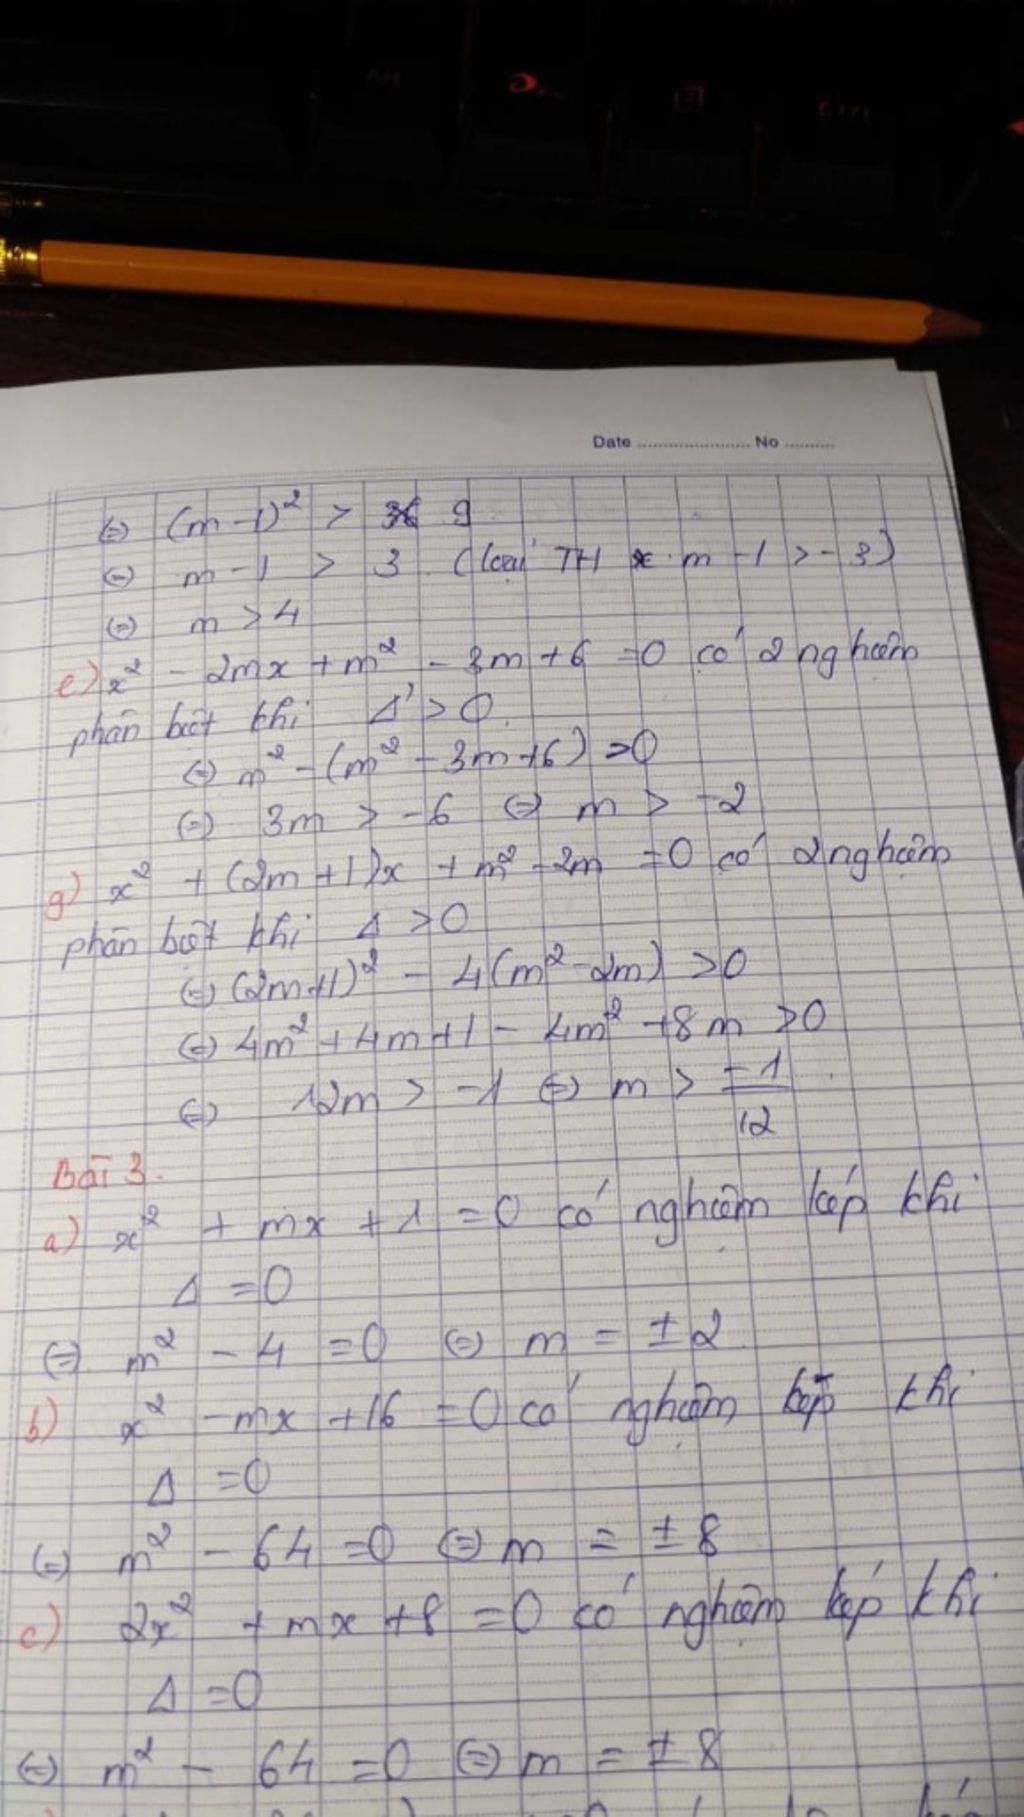 Ctrl
Date ........................ No ..........
⇔ (m - 1)² > 9
⇔ m - 1 > 3 (loại TH m - 1 > - 3)
⇔ m > 4
e) x² - 2mx + m² - 3m + 6 = 0 có 2 nghiệm
phân biệt khi Δ' > 0
⇔ m² - (m² - 3m + 6) > 0
⇔ 3m > -6 ⇔ m > -2
g) x² + (2m + 1)x + m² - 2m = 0 có 2 nghiệm
phân biệt khi Δ > 0
⇔ (2m+1)² - 4(m² - 2m) > 0
⇔ 4m² + 4m + 1 - 4m² + 8m > 0
⇔ 12m > -1 ⇔ m > -1/12
Bài 3.
a) x² + mx + 1 = 0 có nghiệm kép khi
Δ = 0
⇔ m² - 4 = 0 ⇔ m = ±2
b) x² - mx + 16 = 0 có nghiệm kép khi
Δ = 0
⇔ m² - 64 = 0 ⇔ m = ±8
c) 2x² + mx + 8 = 0 có nghiệm kép khi
Δ = 0
⇔ m² - 64 = 0 ⇔ m = ±8